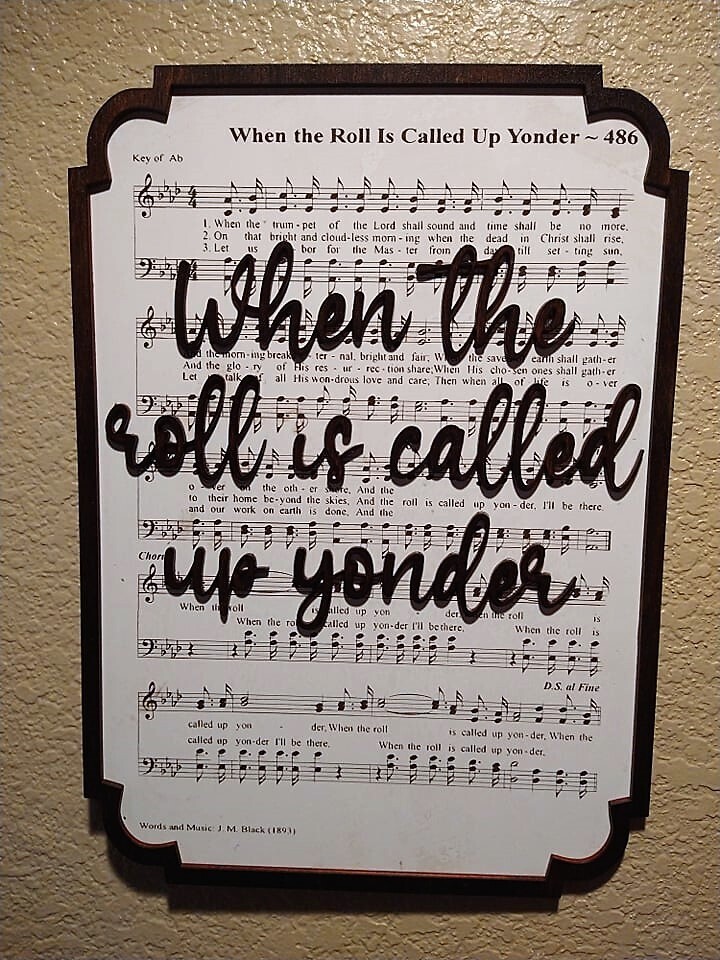 When the Roll Is Called Up Yonder ~ 486
Key of Ab
1. When the trum - pet of the Lord shall sound and time shall be no more,
2. On that bright and cloud - less morn - ing when the dead in Christ shall rise,
3. Let us bor for the Mas - ter from da till set - ting sun,
When the
morn - ing break ter - nal, bright and fair; the save earth shall gath - er
And the glo - ry of His res - ur - rec - tion share; When His cho - sen ones shall gath - er
Let talk of all His won - drous love and care; Then when all of life is o - ver
roll is called
o - ver on the oth - er shore, And the
to their home be - yond the skies, And the roll is called up yon - der, I'll be there.
and our work on earth is done, And the
up yonder
Chor
When the roll is called up yon der, When the roll is
When the ro called up yon - der I'll be there, When the roll is
D.S. al Fine
called up yon - der, When the roll is called up yon - der, When the
called up yon - der I'll be there. When the roll is called up yon - der,
Words and Music: J. M. Black (1893)